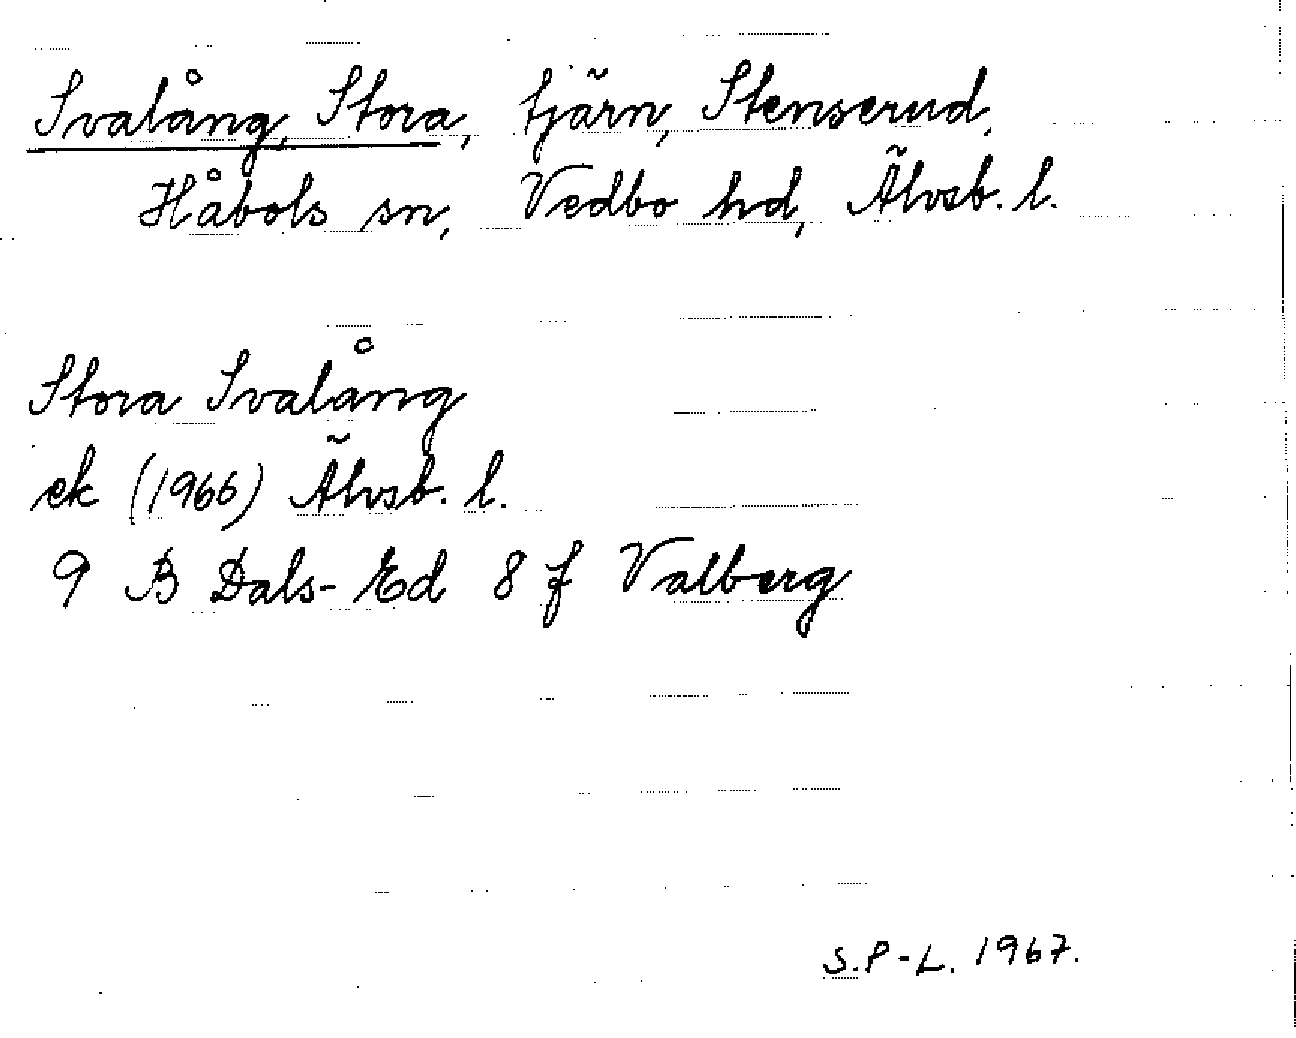 Svalång, Stora, tjärn, Stenserud,
Håbols sn, Vedbo hd, Älvsb. l.
Stora Svalång
ek (1966) Älvsb. l.
9 B Dals-Ed 8 f Valberg
S.P-L. 1967.